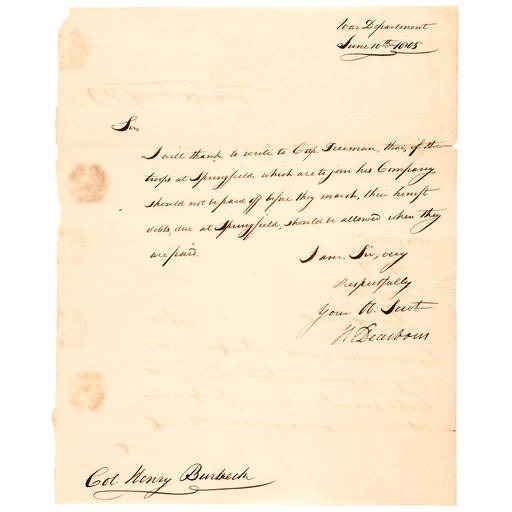 War Department
June 10th 1805
Sir,
I will thank to write to Cap. Freeman, that, if the
troops at Springfield, which are to join his Company,
should not be paid off before they march, their honest
debts, due at Springfield, should be allowed when they
are paid.
I am. Sir, very
Respectfully
Your O. Servt
H. Dearborn
Col. Henry Burbeck